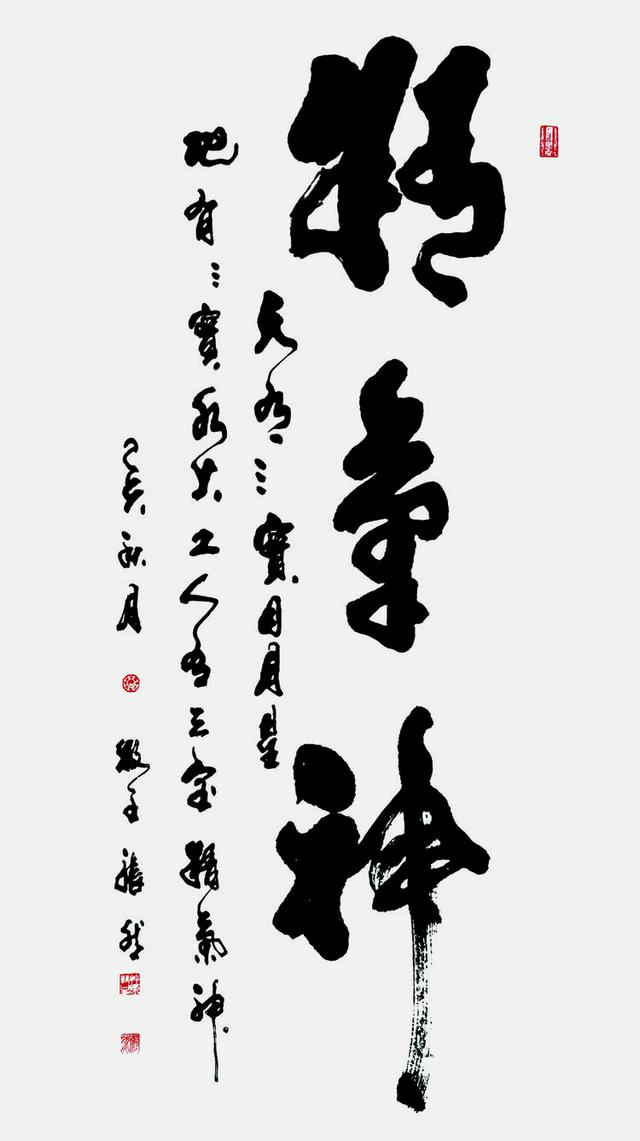 精氣神
天有三寶日月星
地有三寶水火土人有三宝精氣神
己亥秋月